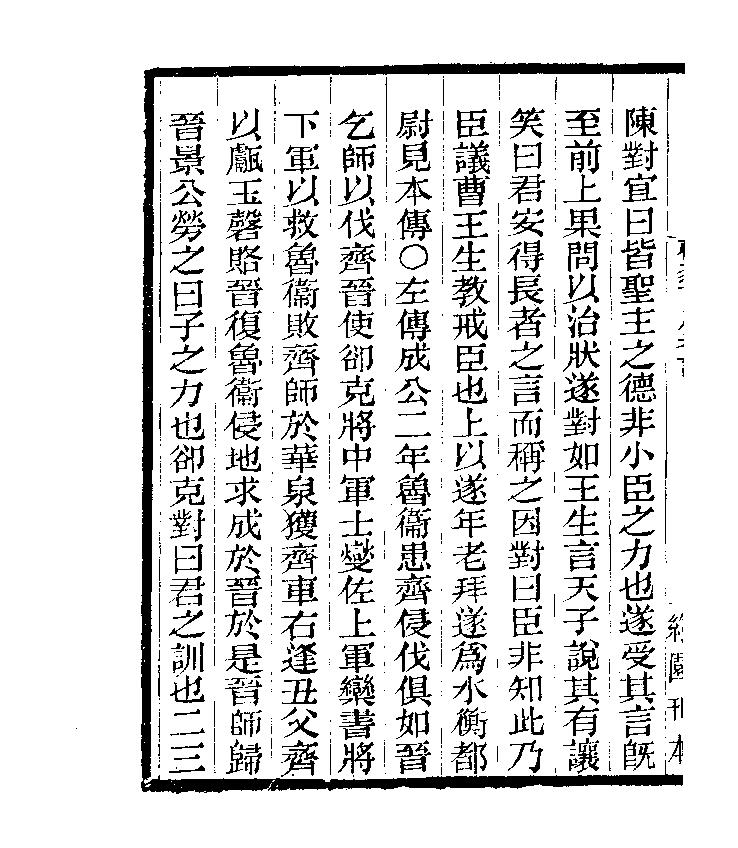 陳對宜曰皆聖主之德非小臣之力也遂受其言旣
至前上果問以治狀遂對如王生言天子說其有讓
笑曰君安得長者之言而稱之因對曰臣非知此乃
臣議曹王生教戒臣也上以遂年老拜遂爲水衡都
尉見本傳○左傳成公二年魯衞患齊侵伐俱如晉
乞師以伐齊晉使卻克將中軍士燮佐上軍欒書將
下軍以救魯衞敗齊師於華泉獲齊車右逢丑父齊
以甗玉磬賂晉復魯衞侵地求成於晉於是晉師歸
晉景公勞之曰子之力也卻克對曰君之訓也二三
園刊本